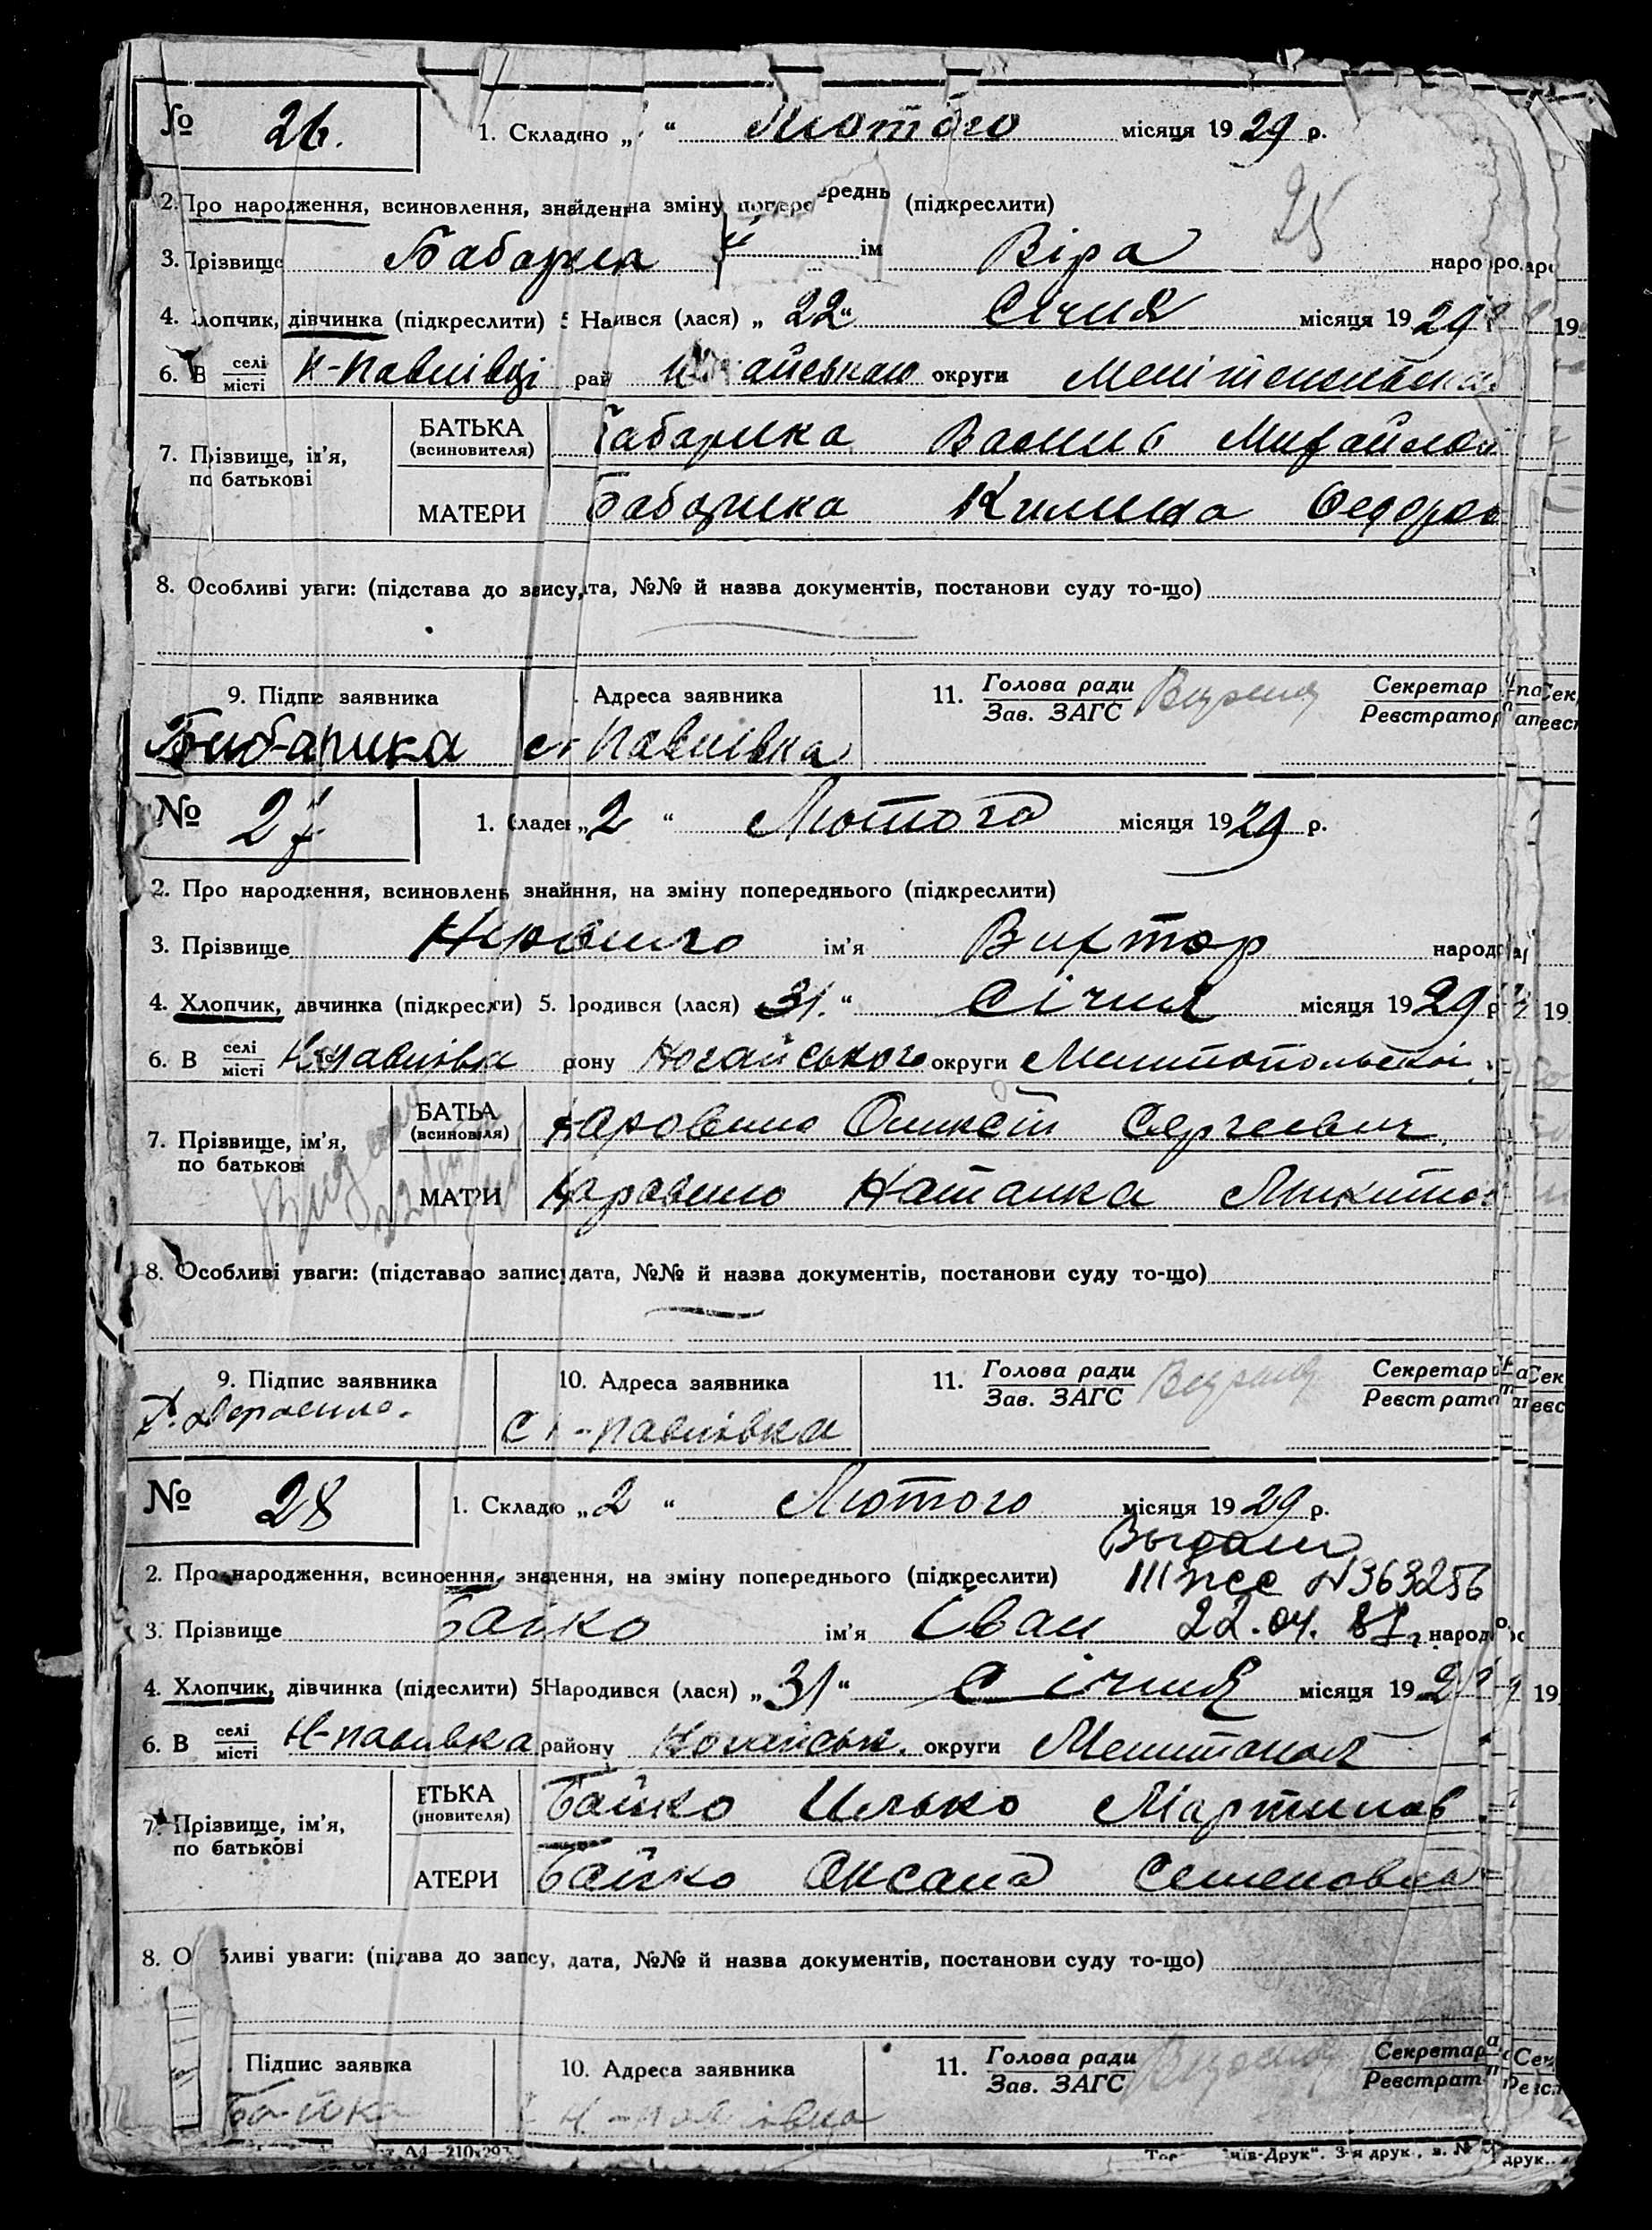 № 26. 1. Складено „ “ Лютого місяця 1929 р.
2. Про народження, всиновлення, знайден на зміну попере ереднь (підкреслити)
25
3. Прізвище Бабарика ім Віра наро
4. Хлопчик, дівчинка (підкреслити) 5 На ився (лася) „22“ Січня місяця 1929 19
6. В селі/місті Н-Павлівці рай округи
7. Прізвище, ім’я, по батькові
БАТЬКА (всиновителя) Бабарика Василь Михайлов
МАТЕРИ Бабарика Килина Федоров
8. Особливі уваги: (підстава до запису, дата, №№ й назва документів, постанови суду то-що)
9. Підпис заявника Адреса заявника 11. Голова ради/Зав. ЗАГС Секретар/Реєстратор
Бабарика Павлівка
№ 27 1. Складен „2“ Лютого місяця 1929 р.
2. Про народження, всиновлень знайння, на зміну попереднього (підкреслити)
3. Прізвище ім’я Виктор народ
4. Хлопчик, дівчинка (підкреслити) 5. Народився (лася) 31.“ Січня місяця 1929 р 19
6. В селі/місті Н-павлівка району Ногайського округи Мелитопольскої
7. Прізвище, ім’я, по батькові
БАТЬКА (всиновителя) Сергеевич
МАТЕРИ Наталка Микитов
8. Особливі уваги: (підстава до запису дата, №№ й назва документів, постанови суду то-що)
9. Підпис заявника 10. Адреса заявника 11. Голова ради/Зав. ЗАГС Секретар/Реєстрато
с Н-павлівка
№ 28 1. Складено „2“ Лютого місяця 1929 р.
Выдано
2. Про народження, всиновлення, знайдення, на зміну попереднього (підкреслити) III N363256
3. Прізвище Бойко ім’я Іван 22.04.87г народ
4. Хлопчик, дівчинка (підкреслити) 5 Народився (лася) „31“ Січня місяця 192 19
6. В селі/місті Н-павлівка району Ногайськ. округи Мелитопол
7. Прізвище, ім’я, по батькові
БАТЬКА (всиновителя) Бойко Илько Мартинов
МАТЕРИ Бойко Оксана Семеновна
8. Особливі уваги: (підстава до запису, дата, №№ й назва документів, постанови суду то-що)
Підпис заявника 10. Адреса заявника 11. Голова ради/Зав. ЗАГС Секретар/Реєстрат
Бойко Н-павлівка
А4 -210x297 "Київ-Друк". 3-я друк., з. №